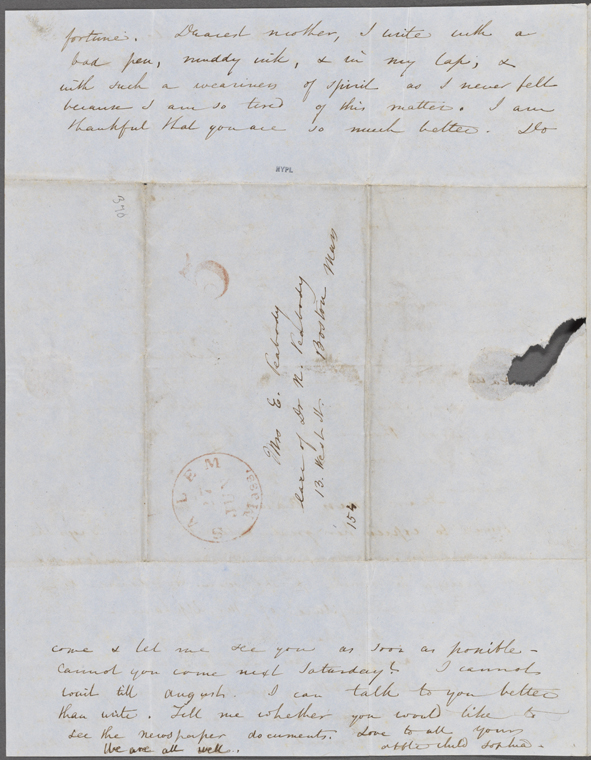 fortune. Dearest mother, I write with a
bad pen, muddy ink, & in my lap, &
with such a weariness of spirit as I never felt
because I am so tired of this matter. I am
thankful that you are so much better. Do
NYPL
390
Mrs E. Peabody
care of Dr N. Peabody
13. West St. Boston Mass
154
SALEM
JUN
MASS.
come & let me see you as soon as possible -
Cannot you come next Saturday? I cannot
wait till august. I can talk to you better
than write. Tell me whether you would like to
see the newspaper documents. Love to all yours
We are all well. child Sophia -